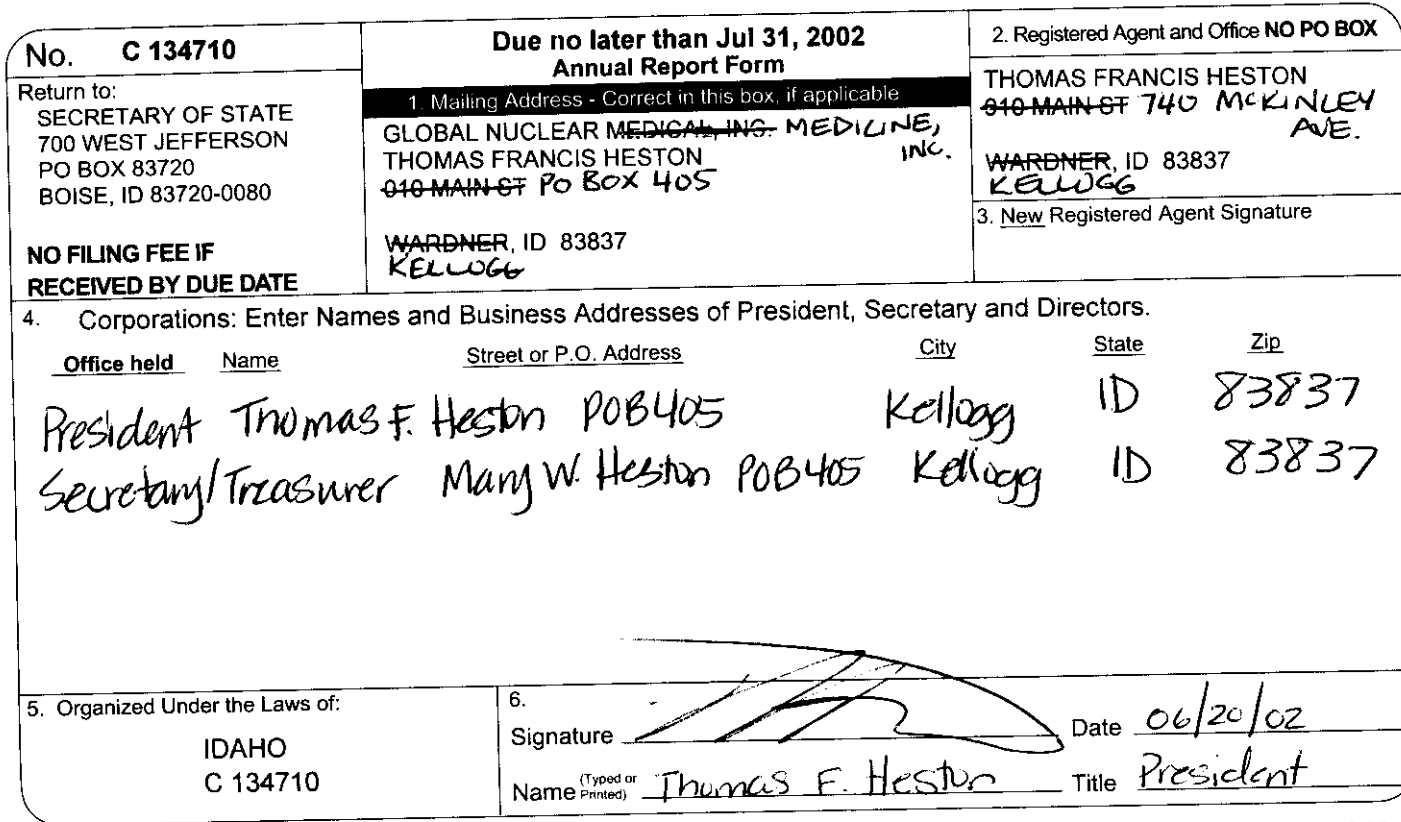 No. C 134710
Return to:
SECRETARY OF STATE
700 WEST JEFFERSON
PO BOX 83720
BOISE, ID 83720-0080
NO FILING FEE IF
RECEIVED BY DUE DATE
Due no later than Jul 31, 2002
Annual Report Form
1. Mailing Address - Correct in this box, if applicable
GLOBAL NUCLEAR MEDICAL, INC. MEDICINE,
INC.
THOMAS FRANCIS HESTON
910 MAIN ST PO BOX 405
WARDNER, ID 83837
KELLOGG
2. Registered Agent and Office NO PO BOX
THOMAS FRANCIS HESTON
910 MAIN ST 740 McKINLEY
AVE.
WARDNER, ID 83837
KELLOGG
3. New Registered Agent Signature
4. Corporations: Enter Names and Business Addresses of President, Secretary and Directors.
Office held Name Street or P.O. Address City State Zip
President Thomas F. Heston POB 405 Kellogg ID 83837
Secretary/Treasurer Mary W. Heston POB 405 Kellogg ID 83837
5. Organized Under the Laws of:
IDAHO
C 134710
6.
Signature Date 06/20/02
Name (Typed or Printed) Thomas F. Heston Title President